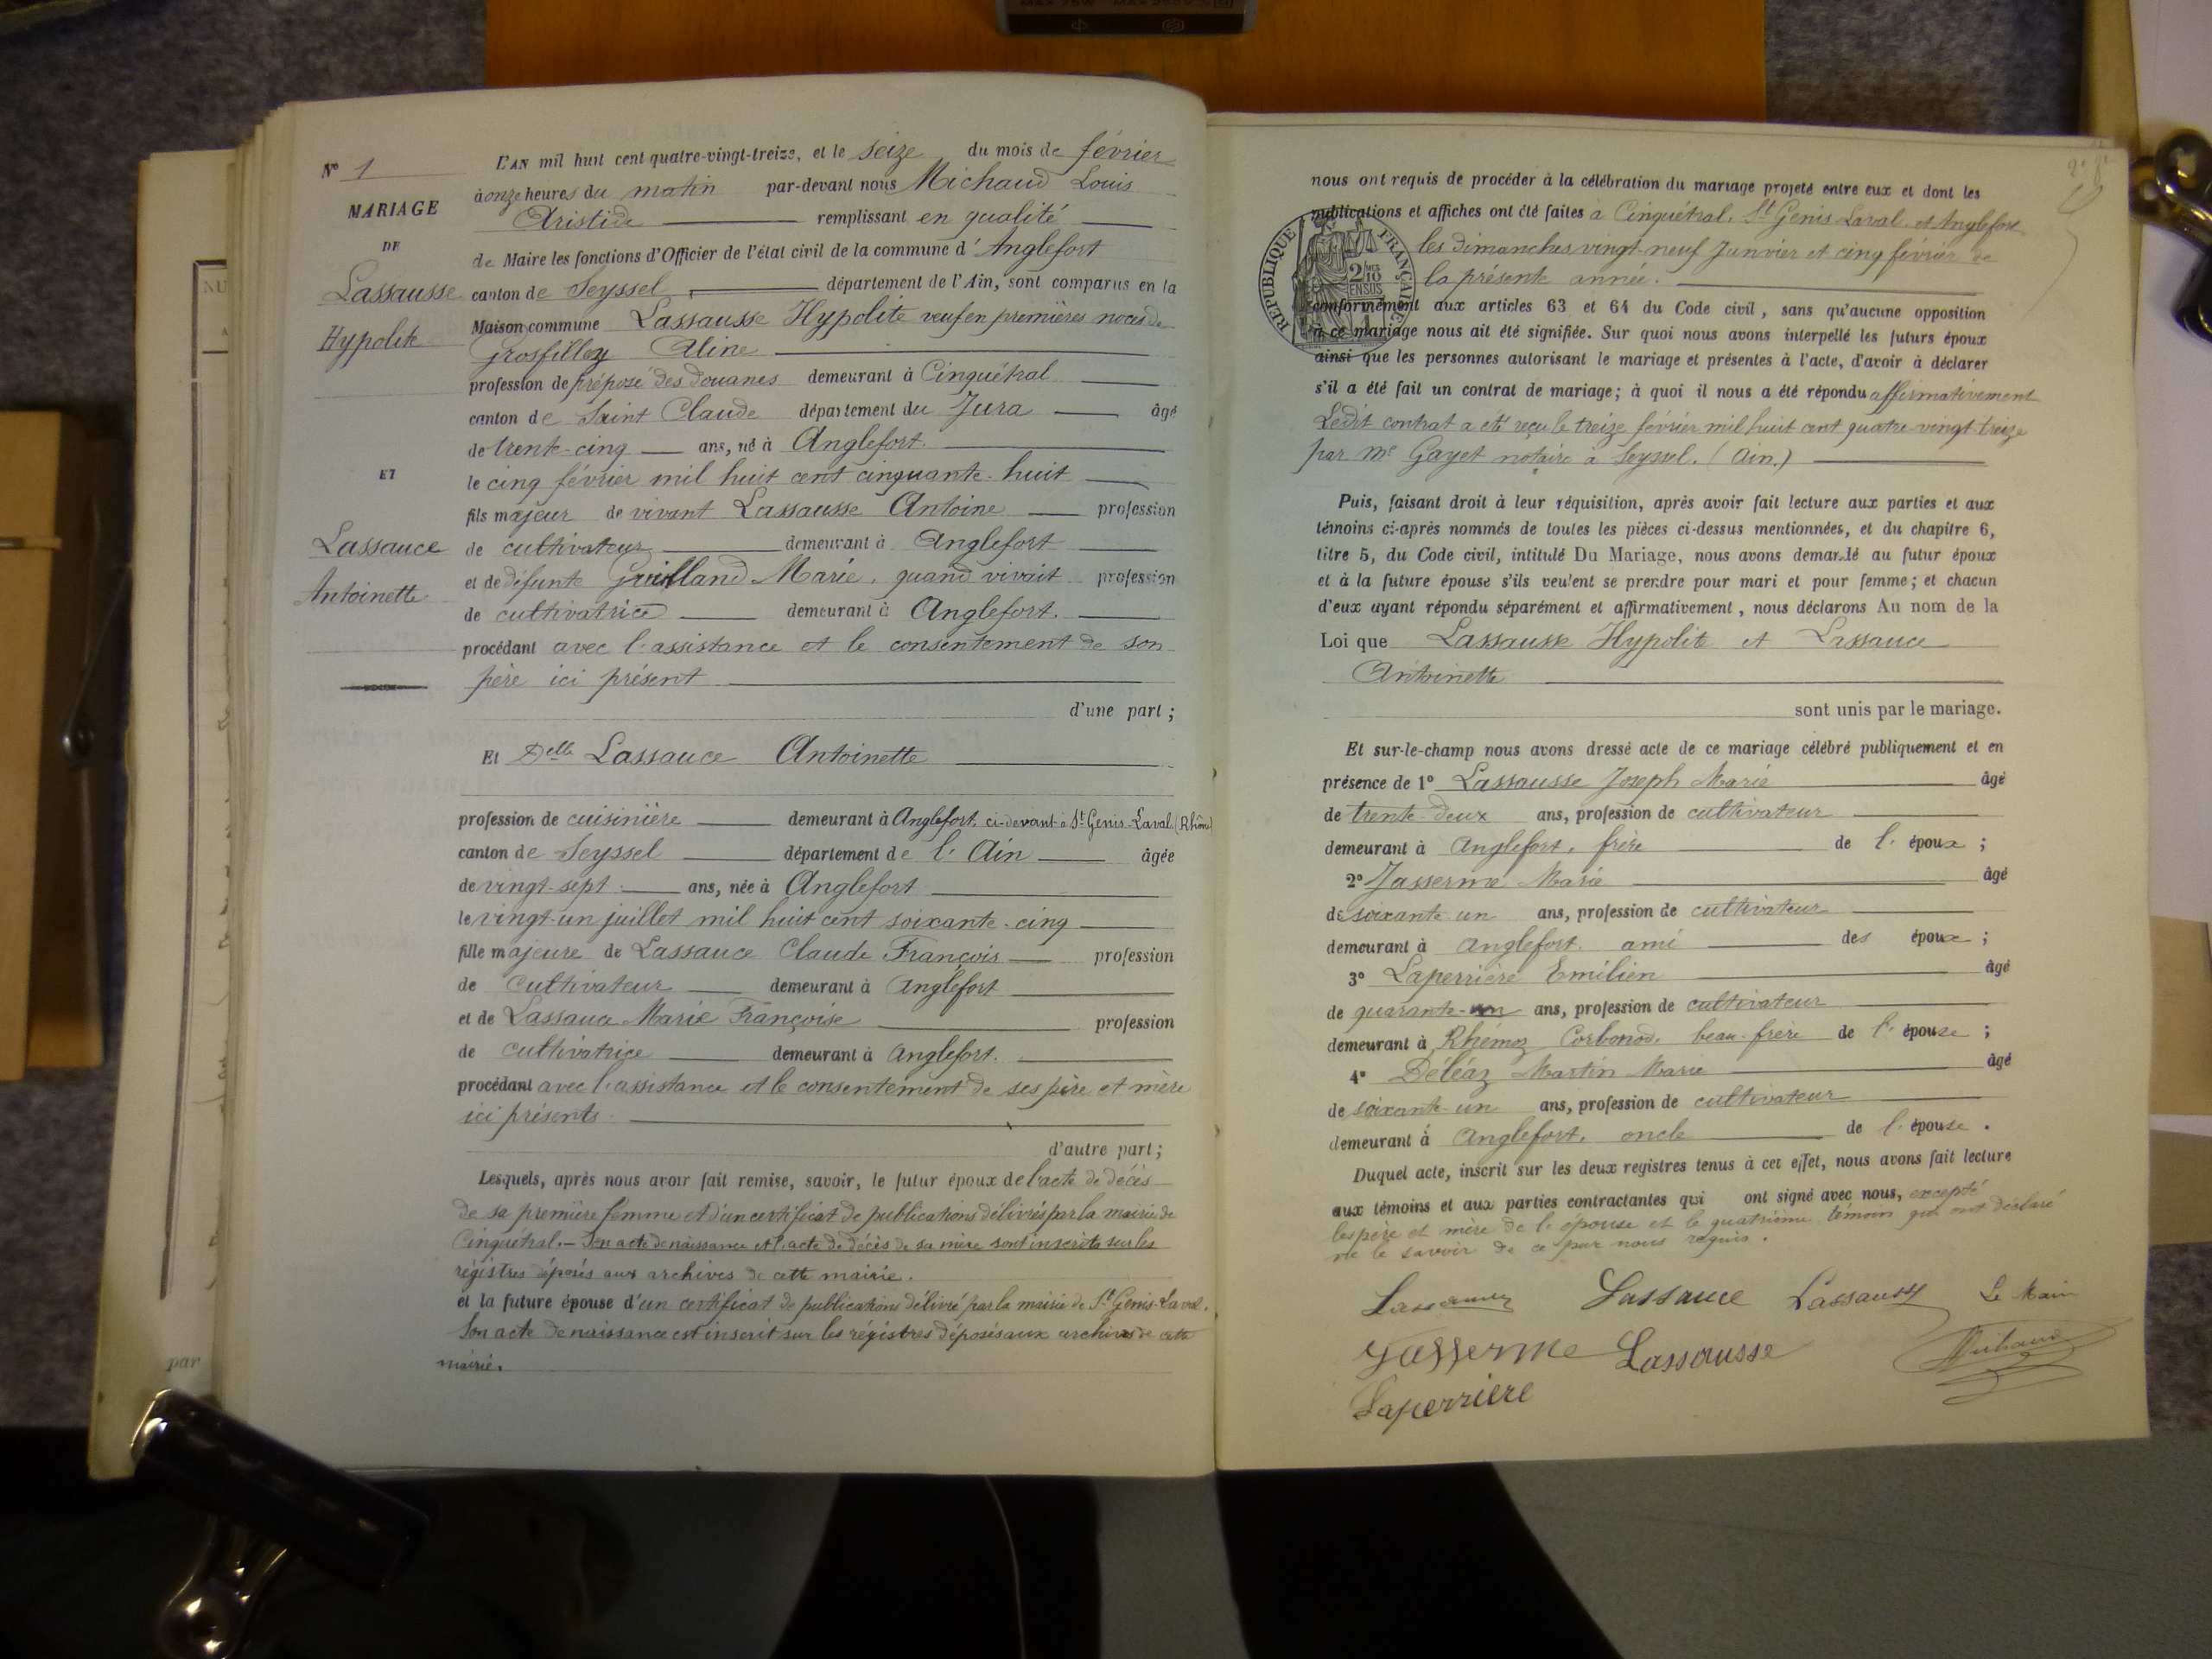 N° 1
MARIAGE
DE
Lassausse
Hypolite
ET
Lassauce
Antoinette
L'AN mil huit cent quatre-vingt-treize, et le seize du mois de février
à onze heures du matin par-devant nous Michaud Louis
Aristide remplissant en qualité
de Maire les fonctions d'Officier de l'état civil de la commune d'Anglefort
canton de Seyssel, département de l'Ain, sont comparus en la
Maison commune Lassausse Hypolite veuf en premières noces de
Grosfilley Aline
profession de préposé des douanes demeurant à Cinquétral
canton de Saint Claude département du Jura âgé
de trente-cinq ans, né à Anglefort.
le cinq février mil huit cent cinquante-huit
fils majeur de vivant Lassausse Antoine profession
de cultivateur demeurant à Anglefort
et de défunte Guilland Marie, quand vivait profession
de cultivatrice demeurant à Anglefort.
procédant avec l'assistance et le consentement de son
père ici présent
d'une part ;
Et Delle Lassauce Antoinette
profession de cuisinière demeurant à Anglefort, ci-devant à St Genis-Laval (Rhône)
canton de Seyssel département de l'Ain âgée
de vingt-sept ans, née à Anglefort
le vingt-un juillet mil huit cent soixante-cinq
fille majeure de Lassauce Claude François profession
de cultivateur demeurant à Anglefort
et de Lassauce Marie Françoise profession
de cultivatrice demeurant à Anglefort.
procédant avec l'assistance et le consentement de ses père et mère
ici présents.
d'autre part ;
Lesquels, après nous avoir fait remise, savoir, le futur époux de l'acte de décès
de sa première femme et d'un certificat de publications délivrés par la mairie de
Cinquétral. - Son acte de naissance et l'acte de décès de sa mère sont inscrits sur les
régistres déposés aux archives de cette mairie.
et la future épouse d'un certificat de publications délivré par la mairie de St Genis-Laval.
Son acte de naissance est inscrit sur les régistres déposés aux archives de cette
mairie.
par
nous ont requis de procéder à la célébration du mariage projeté entre eux et dont les
publications et affiches ont été faites à Cinquétral, St Genis Laval et Anglefort
les dimanches vingt-neuf Janvier et cinq février de
la présente année.
RÉPUBLIQUE FRANÇAISE
conformément aux articles 63 et 64 du Code civil, sans qu'aucune opposition
à ce mariage nous ait été signifiée. Sur quoi nous avons interpellé les futurs époux
ainsi que les personnes autorisant le mariage et présentes à l'acte, d'avoir à déclarer
s'il a été fait un contrat de mariage ; à quoi il nous a été répondu affirmativement
Ledit contrat a été reçu le treize février mil huit cent quatre vingt-treize
par Me Gayet notaire à Seyssel. (Ain.)
Puis, faisant droit à leur réquisition, après avoir fait lecture aux parties et aux
témoins ci-après nommés de toutes les pièces ci-dessus mentionnées, et du chapitre 6,
titre 5, du Code civil, intitulé Du Mariage, nous avons demandé au futur époux
et à la future épouse s'ils veulent se prendre pour mari et pour femme ; et chacun
d'eux ayant répondu séparément et affirmativement, nous déclarons Au nom de la
Loi que Lassausse Hypolite et Lassauce
Antoinette
sont unis par le mariage.
Et sur-le-champ nous avons dressé acte de ce mariage célébré publiquement et en
présence de 1° Lassausse Joseph Marie âgé
de trente-deux ans, profession de cultivateur
demeurant à Anglefort, frère de l'époux ;
2° Jasserme Marie âgé
de soixante-un ans, profession de cultivateur
demeurant à Anglefort. ami des époux ;
3° Laperrière Emilien âgé
de quarante-un ans, profession de cultivateur
demeurant à Rhémoz Corbonod, beau-frère de l'épouse ;
4° Déléaz Martin Marie âgé
de soixante-un ans, profession de cultivateur
demeurant à Anglefort, oncle de l'épouse.
Duquel acte, inscrit sur les deux registres tenus à cet effet, nous avons fait lecture
aux témoins et aux parties contractantes qui ont signé avec nous, excepté
les père et mère de l'épouse et le quatrième témoin qui ont déclaré
ne le savoir de ce par nous requis.
Lassauce Lassausse Le Maire
Jasserme Lassausse Michaud
Laperriere